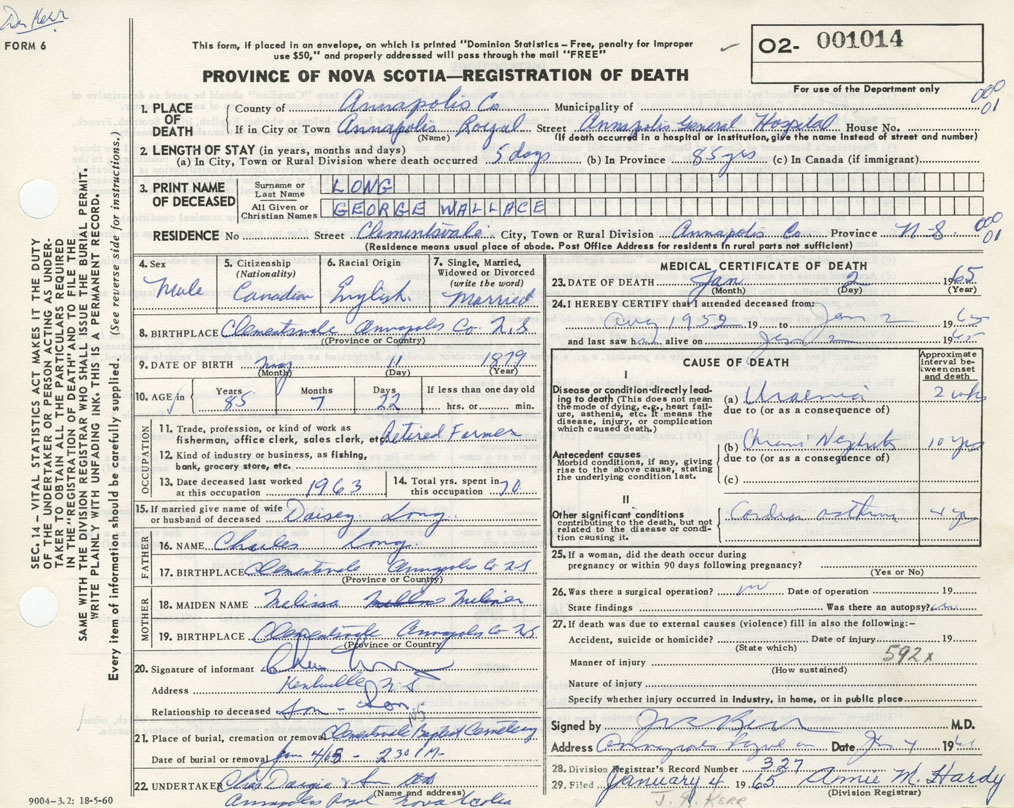 FORM 6
This form, if placed in an envelope, on which is printed "Dominion Statistics – Free, penalty for improper
use $50," and properly addressed will pass through the mail "FREE"
O2- 001014
For use of the Department only
PROVINCE OF NOVA SCOTIA—REGISTRATION OF DEATH
000
01
1. PLACE OF DEATH
County of Annapolis Co Municipality of
If in City or Town Annapolis Royal Street Annapolis General Hospital House No.
(Name) (If death occurred in a hospital or institution, give the name instead of street and number)
2. LENGTH OF STAY (in years, months and days)
(a) In City, Town or Rural Division where death occurred 5 days (b) In Province 85 yrs (c) In Canada (if immigrant)
3. PRINT NAME OF DECEASED
Surname or Last Name LONG
All Given or Christian Names GEORGE WALLACE
RESIDENCE No Street Clementsvale City, Town or Rural Division Annapolis Co Province N-S
000
01
(Residence means usual place of abode. Post Office Address for residents in rural parts not sufficient)
4. Sex
Male
5. Citizenship (Nationality)
Canadian
6. Racial Origin
English
7. Single, Married, Widowed or Divorced (write the word)
Married
8. BIRTHPLACE Clementsvale Annapolis Co N.S
(Province or Country)
9. DATE OF BIRTH May 11 1879
(Month) (Day) (Year)
10. AGE in
Years 85
Months 7
Days 22
If less than one day old
hrs. or min.
OCCUPATION
11. Trade, profession, or kind of work as
fisherman, office clerk, sales clerk, etc. Retired Farmer
12. Kind of industry or business, as fishing,
bank, grocery store, etc.
13. Date deceased last worked
at this occupation 1963
14. Total yrs. spent in
this occupation 70
15. If married give name of wife
or husband of deceased Daisey Long
FATHER
16. NAME Charles Long
17. BIRTHPLACE Clementsvale Annapolis Co N S
(Province or Country)
MOTHER
18. MAIDEN NAME Melissa Milner
19. BIRTHPLACE Clementsvale Annapolis Co N.S.
(Province or Country)
20. Signature of informant
Address Kentville N S
Relationship to deceased Son
21. Place of burial, cremation or removal Clementsvale Baptist Cemetery
Date of burial or removal Jan 4/65 - 2 30 PM
22. UNDERTAKER Chas Dargie & Son
(Name and address)
Annapolis Royal Nova Scotia
MEDICAL CERTIFICATE OF DEATH
23. DATE OF DEATH Jan 2 1965
(Month) (Day) (Year)
24. I HEREBY CERTIFY that I attended deceased from:
1952 19 to Jan 2 1965
and last saw h alive on Jan 2 1965
CAUSE OF DEATH
Approximate interval between onset and death
I
Disease or condition directly leading to death (This does not mean the mode of dying, e.g., heart failure, asthenia, etc. It means the disease, injury, or complication which caused death.)
(a) Uraemia 2 wks
due to (or as a consequence of)
Antecedent causes
Morbid conditions, if any, giving rise to the above cause, stating the underlying condition last.
(b) Chronic Nephritis 10 yrs
due to (or as a consequence of)
(c)
II
Other significant conditions
contributing to the death, but not related to the disease or condition causing it.
asthma 4 yrs
25. If a woman, did the death occur during
pregnancy or within 90 days following pregnancy?
(Yes or No)
26. Was there a surgical operation? no Date of operation 19
State findings Was there an autopsy? no
27. If death was due to external causes (violence) fill in also the following:-
Accident, suicide or homicide? Date of injury 19
(State which)
592x
Manner of injury
(How sustained)
Nature of injury
Specify whether injury occurred in Industry, in home, or in public place
Signed by M.D.
Address Annapolis Royal Date Jan 4 19
28. Division Registrar's Record Number 327
29. Filed January 4 1965 Annie M. Hardy
(Division Registrar)
J. R. KERR
SEC. 14 – VITAL STATISTICS ACT MAKES IT THE DUTY
OF THE UNDERTAKER OR PERSON ACTING AS UNDER-
TAKER TO OBTAIN ALL THE PARTICULARS REQUIRED
IN THE "REGISTRATION OF DEATH" AND TO FILE THE
SAME WITH THE DIVISION REGISTRAR WHO SHALL ISSUE THE BURIAL PERMIT.
WRITE PLAINLY WITH UNFADING INK. THIS IS A PERMANENT RECORD.
Every item of information should be carefully supplied. (See reverse side for instructions.)
9004-3.2: 18-5-60